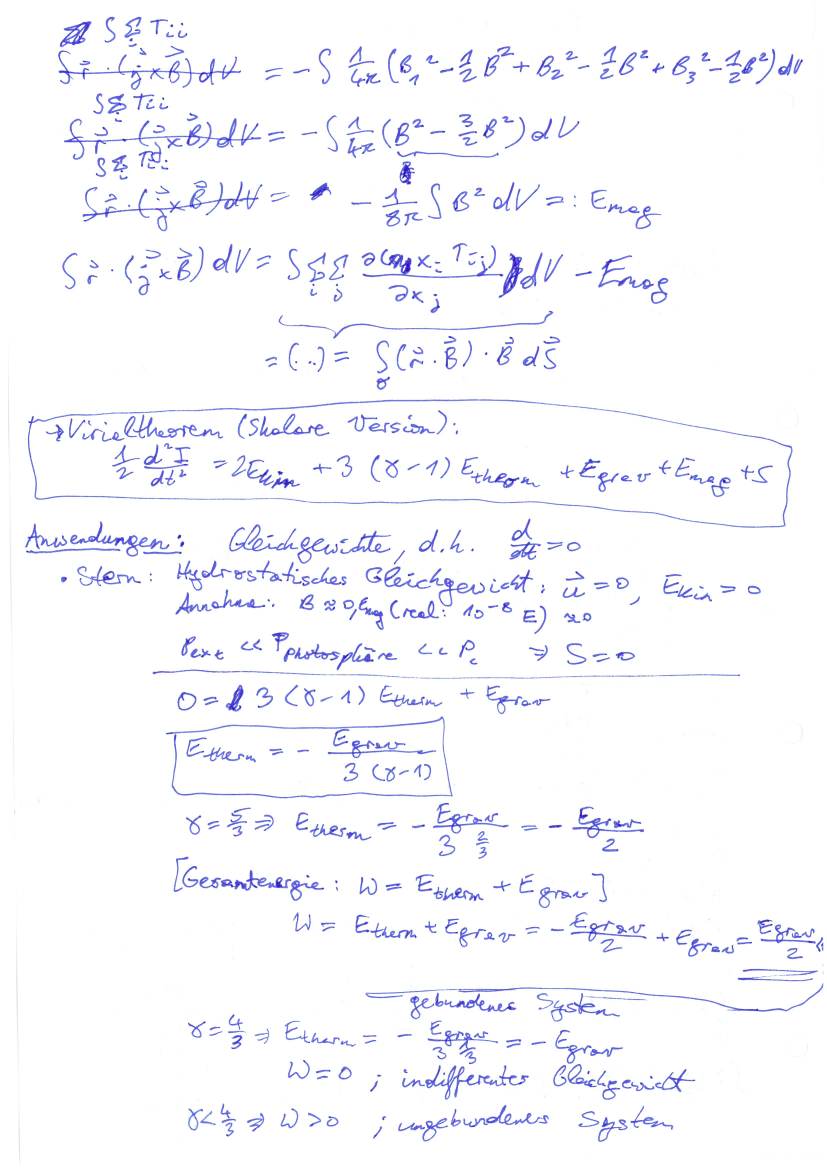 ∫ Σ_i T_ii
∫ r⃗ · (j⃗ × B⃗) dV = - ∫ 1/4π (B₁² - 1/2 B² + B₂² - 1/2 B² + B₃² - 1/2 B²) dV
∫ Σ_i T_ii
∫ r⃗ · (j⃗ × B⃗) dV = - ∫ 1/4π (B² - 3/2 B²) dV
∫ Σ_i T_ii
∫ r⃗ · (j⃗ × B⃗) dV = - 1/8π ∫ B² dV =: E_mag
∫ r⃗ · (j⃗ × B⃗) dV = ∫ Σ_i Σ_j ∂(x_i T_ij)/∂x_j dV - E_mag
= (...) = ∫_σ (r⃗ · B⃗) · B⃗ dS⃗
→ Virialtheorem (Skalare Version):
1/2 d²I/dt² = 2E_kin + 3 (γ-1) E_therm + E_grav + E_mag + S
Anwendungen: Gleichgewichte, d.h. d/dt = 0
• Stern: Hydrostatisches Gleichgewicht: u⃗ = 0, E_kin = 0
Annahme: B ≈ 0, E_mag (real: 10⁻⁸ E) ≈ 0
P_ext << P_photosphäre << P_c ⇒ S = 0
0 = 3 (γ-1) E_therm + E_grav
E_therm = - E_grav / 3 (γ-1)
γ = 5/3 ⇒ E_therm = - E_grav / 3 2/3 = - E_grav / 2
[Gesamtenergie: W = E_therm + E_grav]
W = E_therm + E_grav = - E_grav/2 + E_grav = E_grav/2 <
gebundenes System
γ = 4/3 ⇒ E_therm = - E_grav / 3 1/3 = - E_grav
W = 0 ; indifferentes Gleichgewicht
γ < 4/3 ⇒ W > 0 ; ungebundenes System